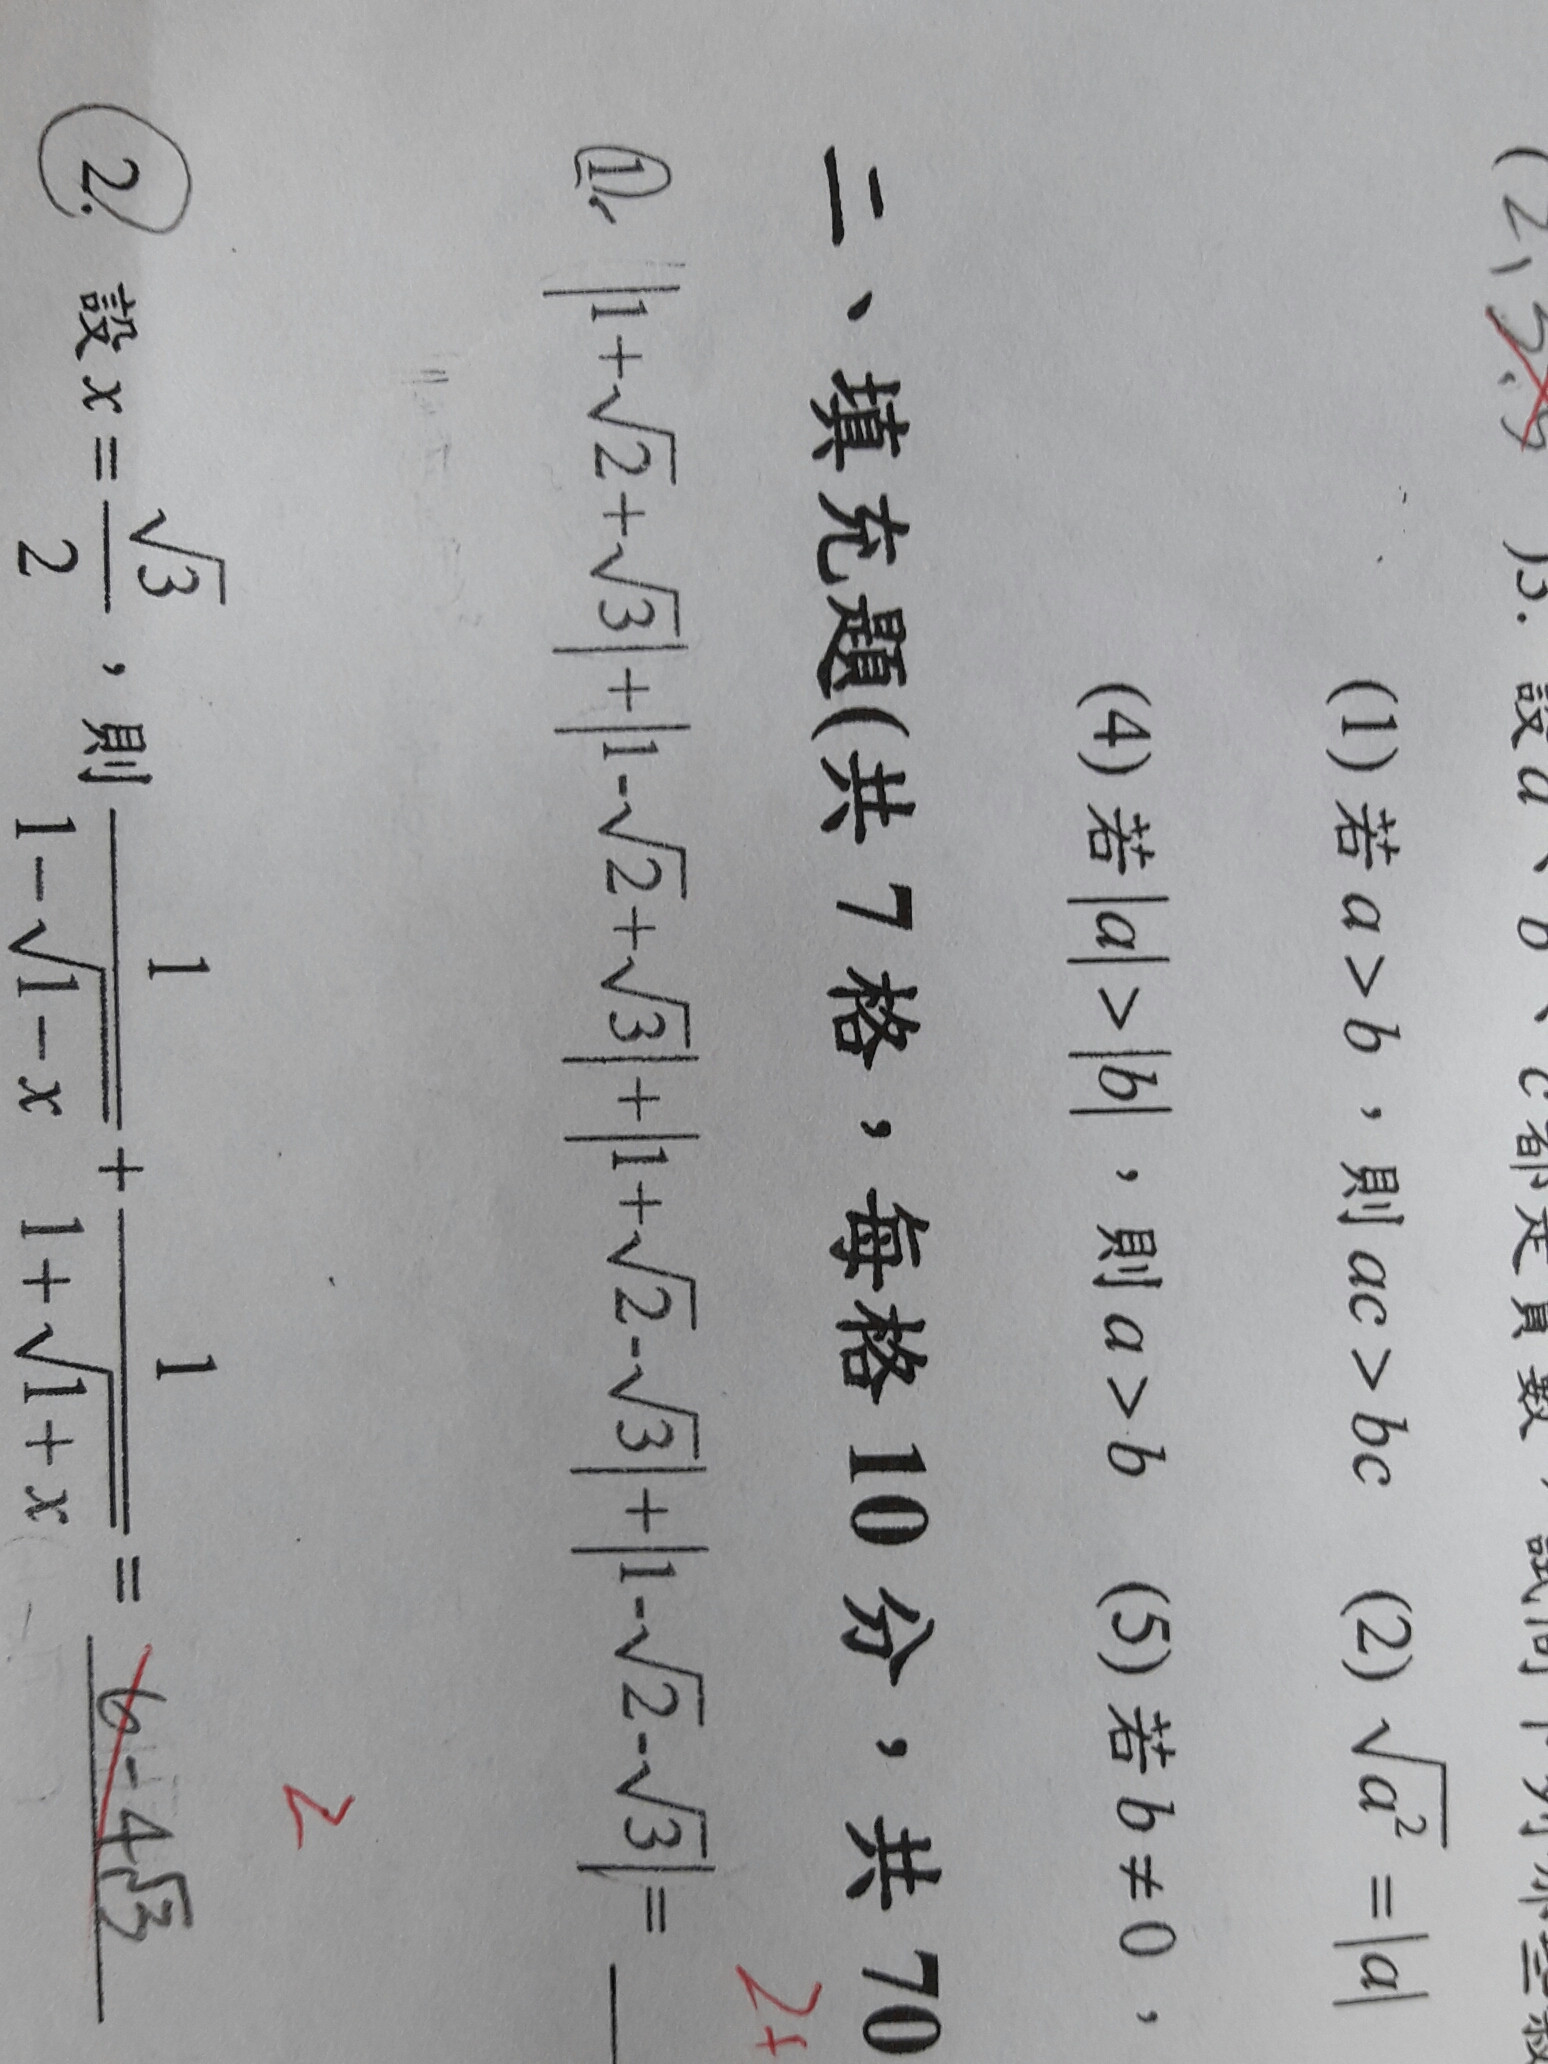 (2、3、5 )5. 設a、b、c都是實數，試問下列
(1) 若a>b，則ac>bc (2) √a² =|a|
(4) 若|a|>|b|，則a>b (5) 若b≠0，
二、填充題(共 7 格，每格 10 分，共 70
1. |1+√2+√3|+|1-√2+√3|+|1+√2-√3|+|1-√2-√3|=
2+
2. 設x=√3/2，則 1/(1-√(1-x)) + 1/(1+√(1+x)) = 6-4√3
2